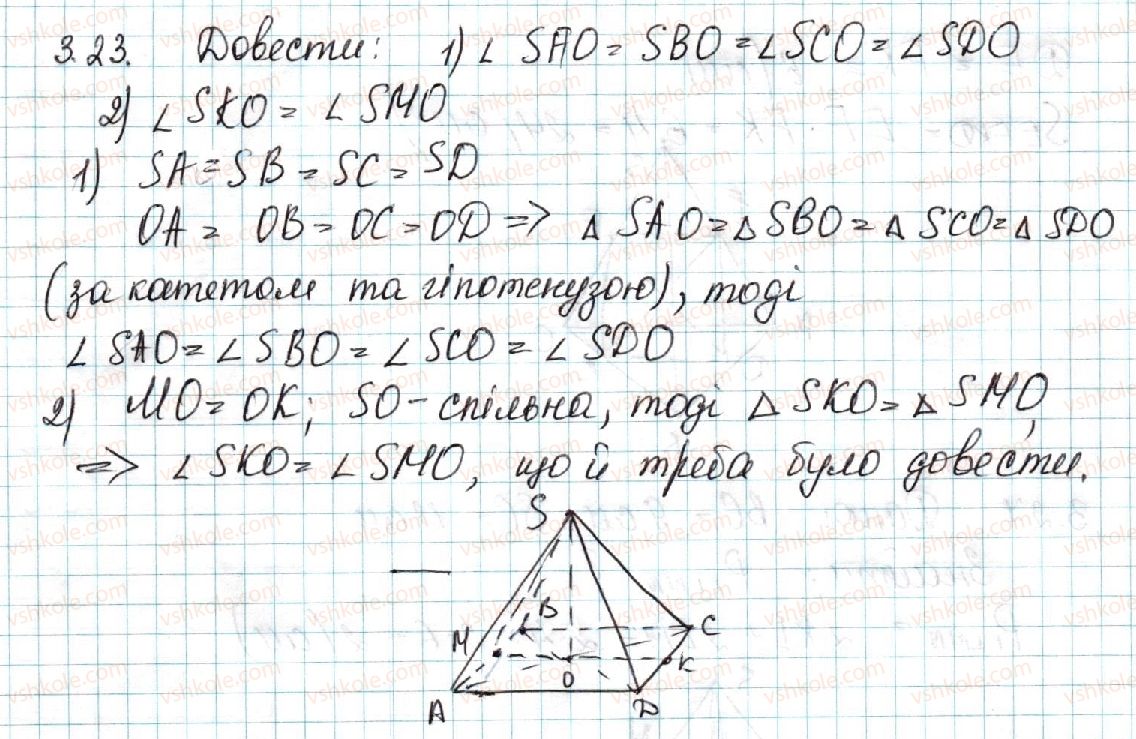 3.23. Довести: 1) ∠ SAO = SBO = ∠ SCO = ∠ SDO
2) ∠ SKO = ∠ SMO
1) SA = SB = SC = SD
OA = OB = OC = OD => △ SAO = △ SBO = △ SCO = △ SDO
(за катетом та гіпотенузою), тоді
∠ SAO = ∠ SBO = ∠ SCO = ∠ SDO
2) MO = OK; SO - спільна, тоді △ SKO = △ SMO,
=> ∠ SKO = ∠ SMO, що й треба було довести.
S
B
C
M
K
O
A
D
vshkole.com